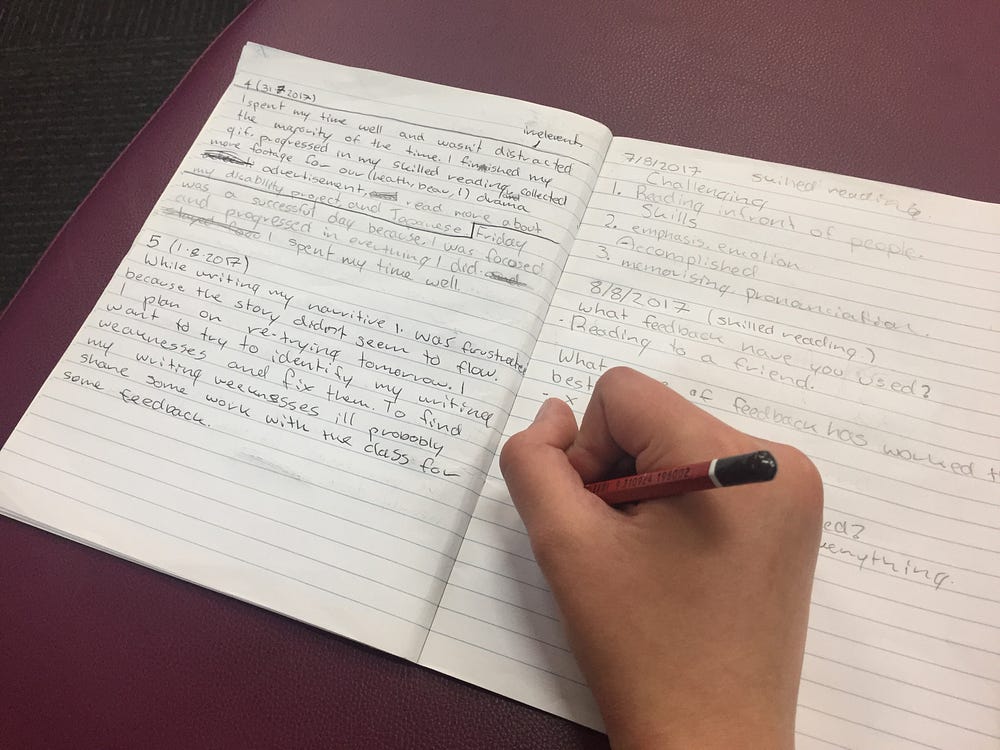 4 (31.7.2017)
I spent my time well and wasn't distracted
irrelevent,
the majority of the time. I finished my
gif, progressed in my skilled reading, collected
more footage for our (heath, beau, I) drama
advertisement, read more about
my disability project and Japanese. Friday
was a successful day because, I was focosed
and progressed in everthing I did.
I spent my time well.
5 (1.8.2017)
While writing my narritive I was furustrated
because the story didnt seem to flow.
I plan on re-trying tomorrow. I
want to try to identify my writing
weaknesses and fix them. To find
my writing weeknesses ill probobly
share some work with the class for
some feedback.
7/8/2017 skilled reading
Challenging
1. Reading infront of people.
Skills
2. emphasis, emotion
Accomplished
3. memorising pronounciation.
8/8/2017 (skilled reading)
What feedback have you used?
- Reading to a friend.
What of feedback has worked
best
- x
ed?
everything.
1 110964 198002